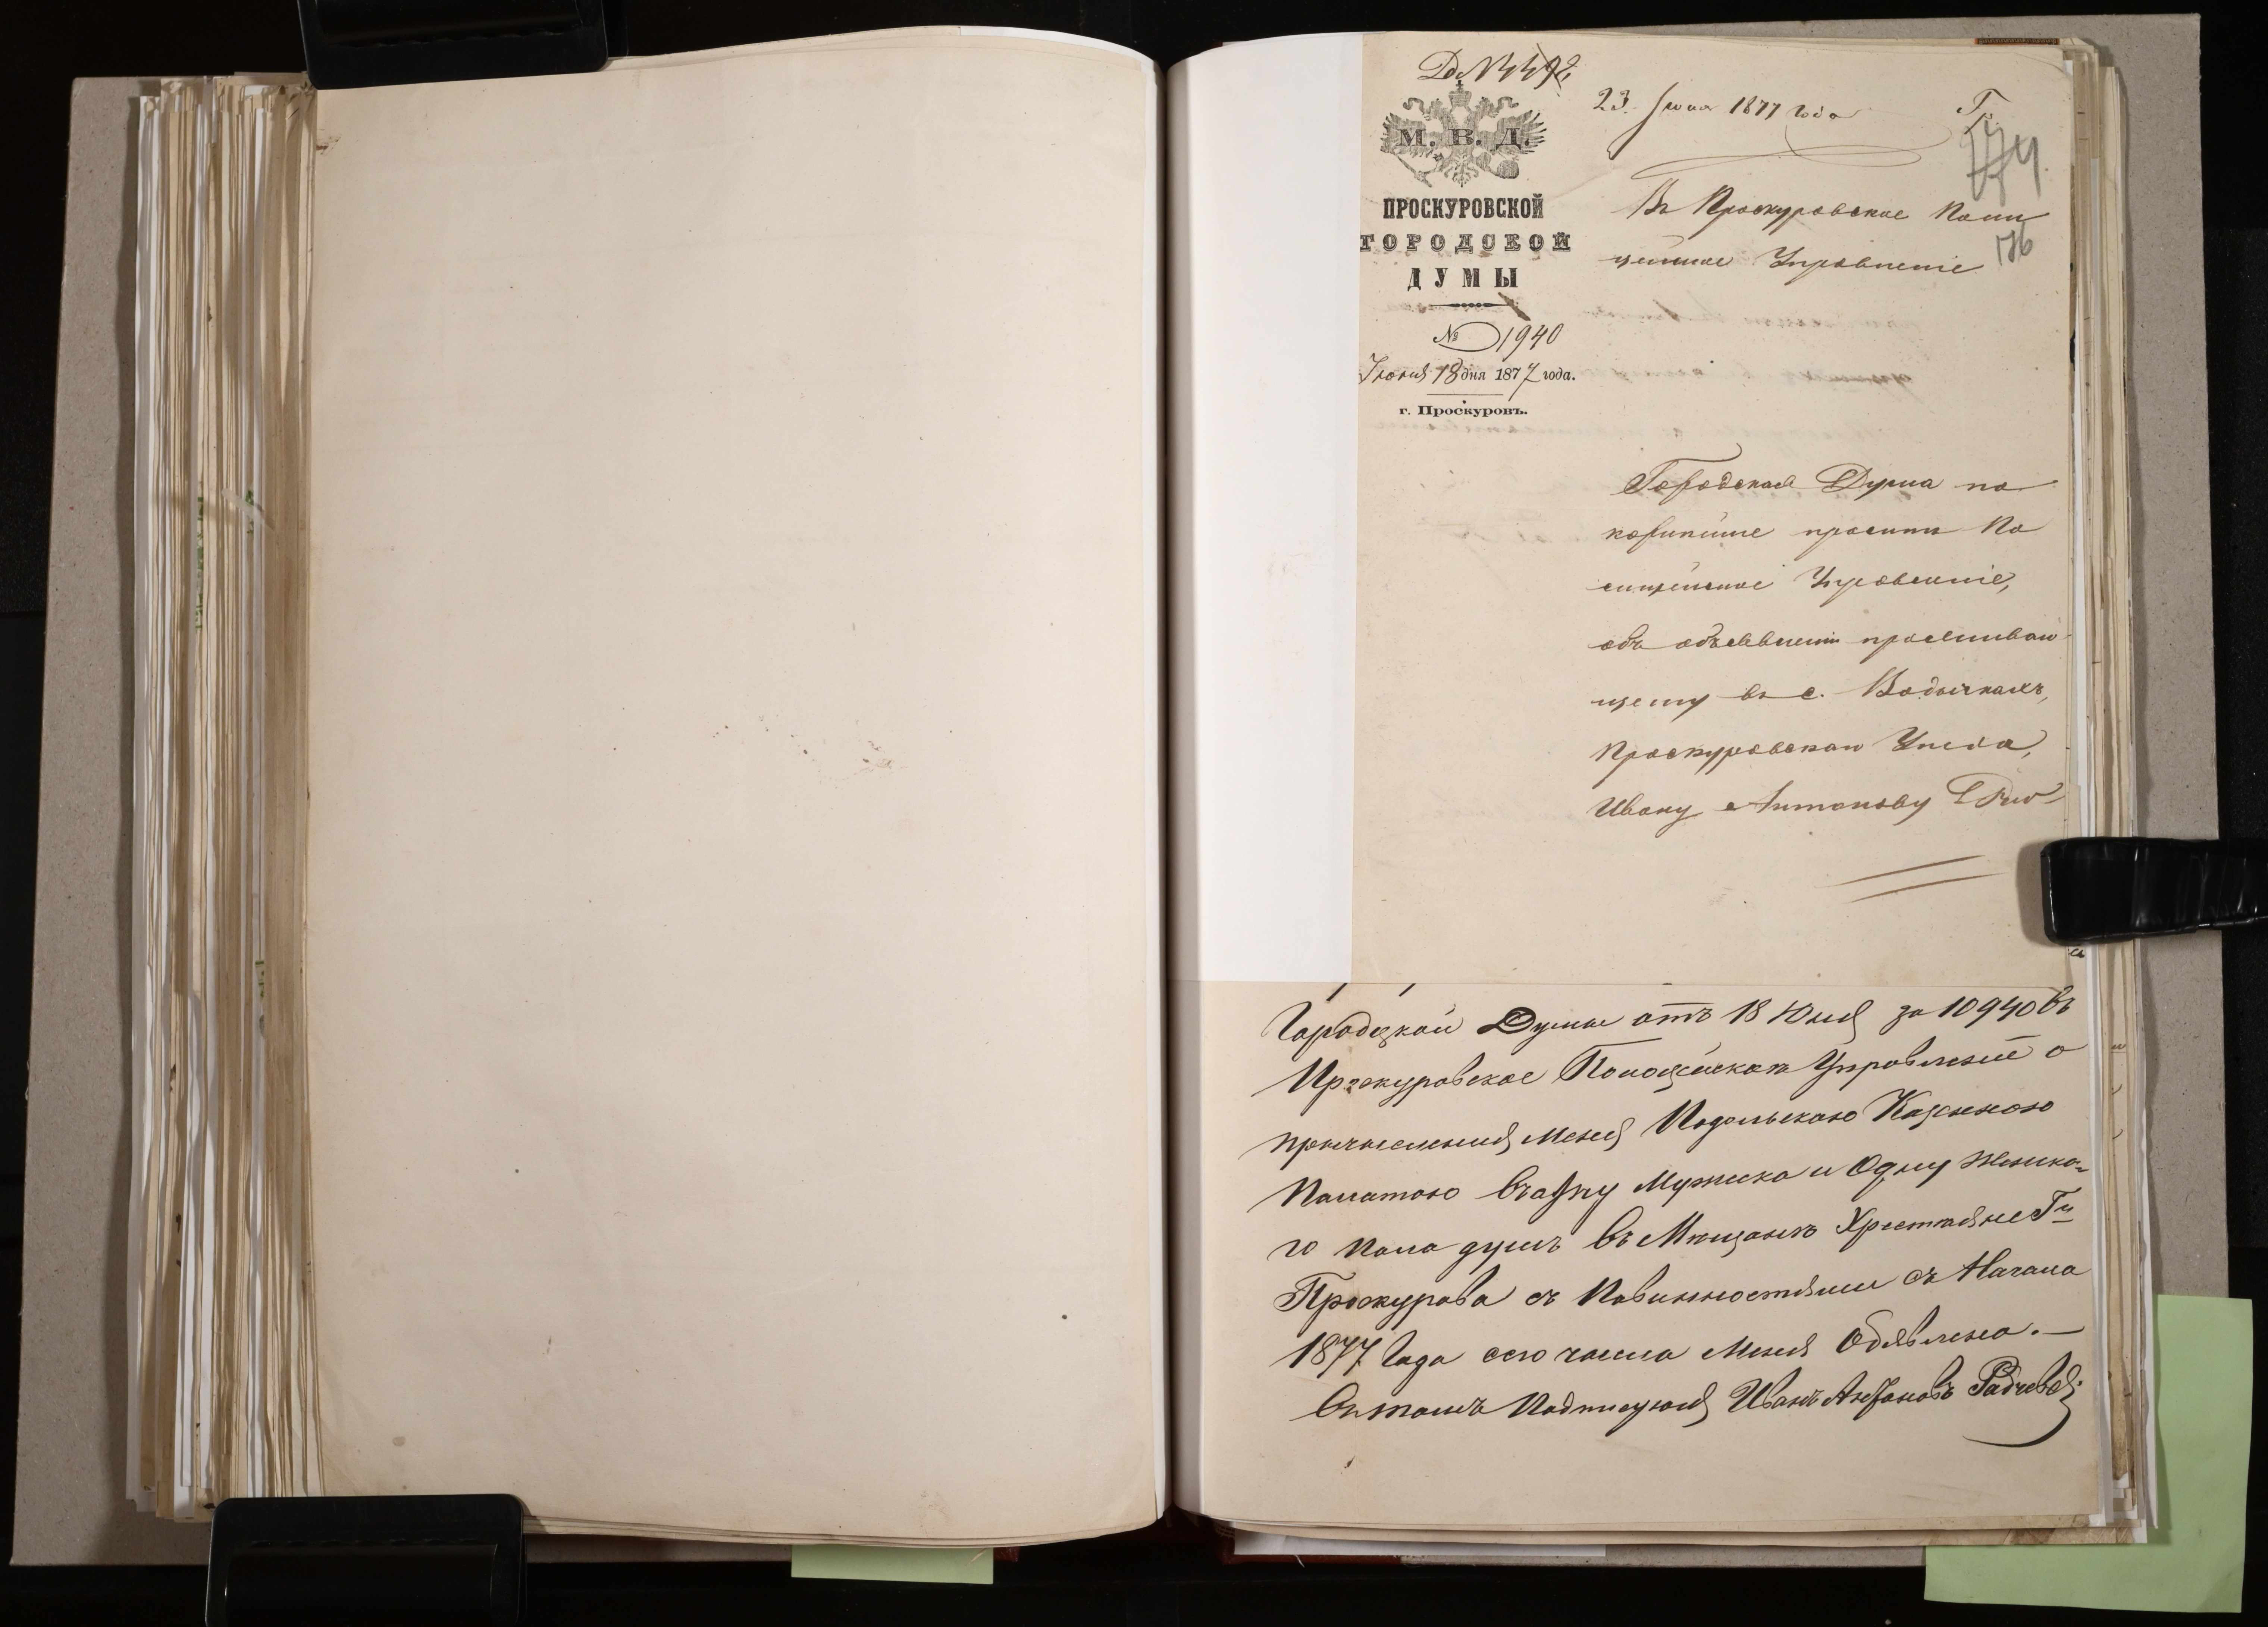 23 Июня 1877 года
М. В. Д.
174
176
ПРОСКУРОВСКОЙ
ГОРОДСКОЙ
ДУМЫ
№ 1940
Июня 18 дня 1877 года.
г. Проскуровъ.
Въ Проскуровское Поли
цейское Управленіе
Городская Дума по
корнѣйше проситъ По
лицейское Управленіе,
объ объявленіи проживаю
щему въ с. Водычкахъ,
Проскуровскаго Уѣзда,
Ивану Антонову
Городзкой Думы отъ 18 Юня за 10940 въ
Проскуровское Управление о
причисления Меня Подольскаю Казенною
Палатою Мужска и Одну Женска-
го Пола душъ въ Мещанъ Християне Гу
Проскурова съ Повинностями съ Начала
1877 Года сего числа Меня Обявлено. —
Вътомъ Подписуюся Иванъ Антоновъ